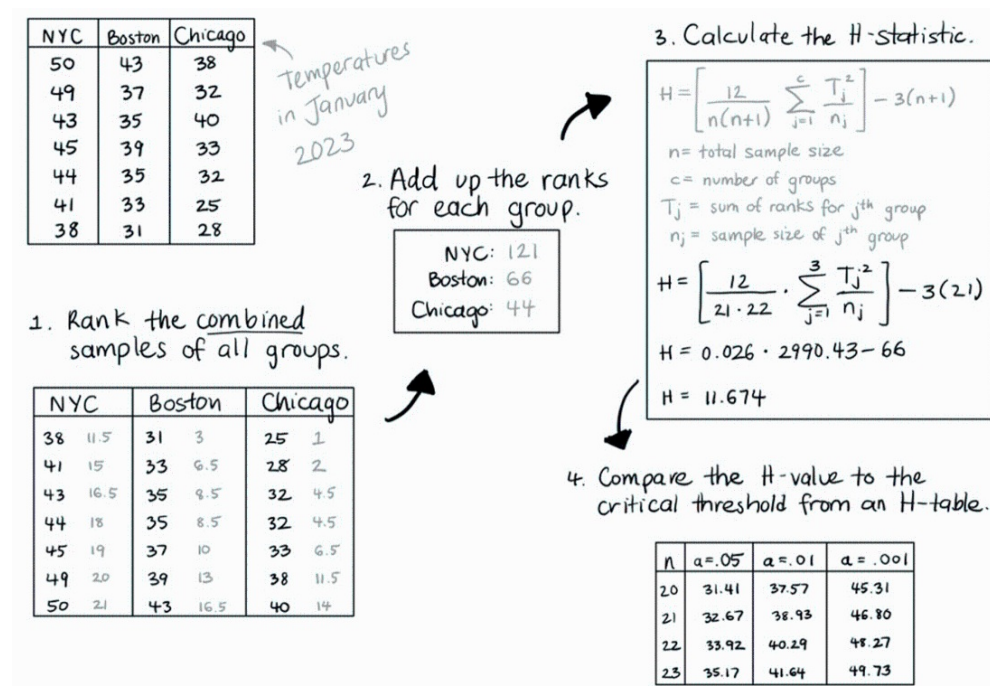 NYC Boston Chicago
50 43 38
49 37 32
43 35 40
45 39 33
44 35 32
41 33 25
38 31 28
Temperatures
in January
2023
1. Rank the combined
samples of all groups.
NYC Boston Chicago
38 11.5 31 3 25 1
41 15 33 6.5 28 2
43 16.5 35 8.5 32 4.5
44 18 35 8.5 32 4.5
45 19 37 10 33 6.5
49 20 39 13 38 11.5
50 21 43 16.5 40 14
2. Add up the ranks
for each group.
NYC: 121
Boston: 66
Chicago: 44
3. Calculate the H-statistic.
H = [12/n(n+1) Σ_{j=1}^{c} T_j²/n_j] - 3(n+1)
n = total sample size
c = number of groups
Tj = sum of ranks for jth group
nj = sample size of jth group
H = [12/21·22 · Σ_{j=1}^{3} T_j²/n_j] - 3(21)
H = 0.026 · 2990.43 - 66
H = 11.674
4. Compare the H-value to the
critical threshold from an H-table.
n a=.05 a=.01 a=.001
20 31.41 37.57 45.31
21 32.67 38.93 46.80
22 33.92 40.29 48.27
23 35.17 41.64 49.73